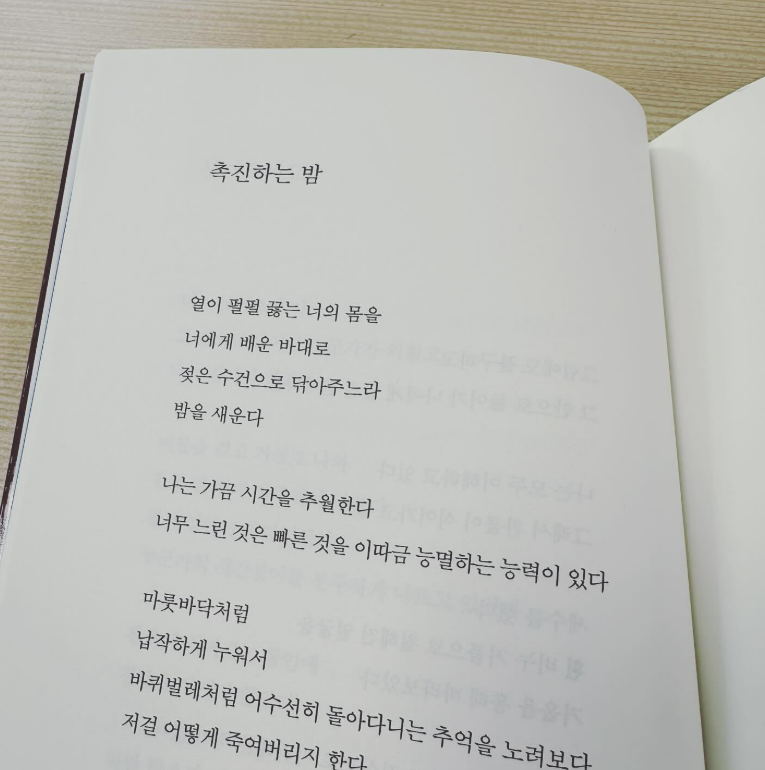 촉진하는 밤
열이 펄펄 끓는 너의 몸을
너에게 배운 바대로
젖은 수건으로 닦아주느라
밤을 새운다
나는 가끔 시간을 추월한다
너무 느린 것은 빠른 것을 이따금 능멸하는 능력이 있다
마룻바닥처럼
납작하게 누워서
바퀴벌레처럼 어수선히 돌아다니는 추억을 노려보다
저걸 어떻게 죽여버리지 한다